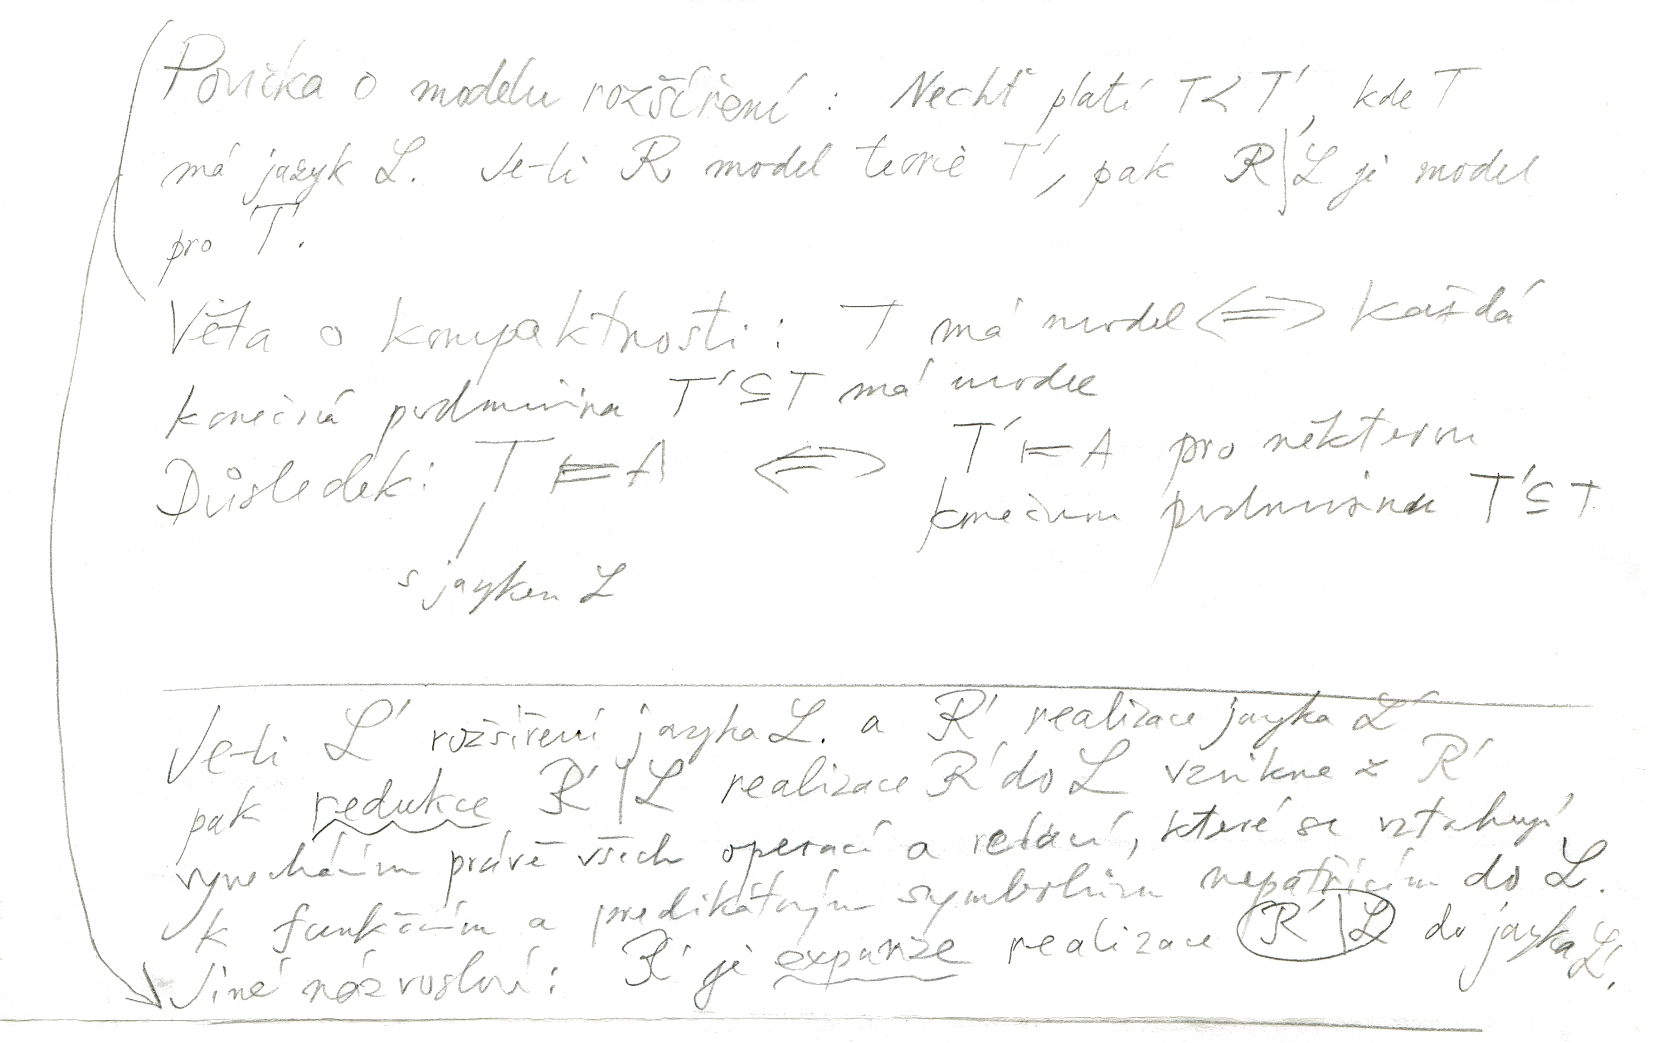 Povička o modelu rozšíření : Nechť platí T < T', kde T
má jazyk ℒ. Je-li ℛ model teorie T', pak ℛ|ℒ je model
pro T.
Věta o kompaktnosti : T má model <=> každá
konečná podmnožina T' ⊆ T má model
Důsledek : T ⊨ A <=> T' ⊨ A pro některou
konečnou podmnožinu T' ⊆ T
s jazykem ℒ
Je-li ℒ' rozšíření jazyka ℒ. a ℛ' realizace jazyka ℒ'
pak redukce ℛ'|ℒ realizace ℛ' do ℒ vznikne z ℛ'
vynecháním právě všech operací a relací, které se vztahují
k funkčním a predikátovým symbolům nepatřícím do ℒ.
Jiné názvosloví : ℛ' je expanze realizace ℛ'|ℒ do jazyka ℒ'.